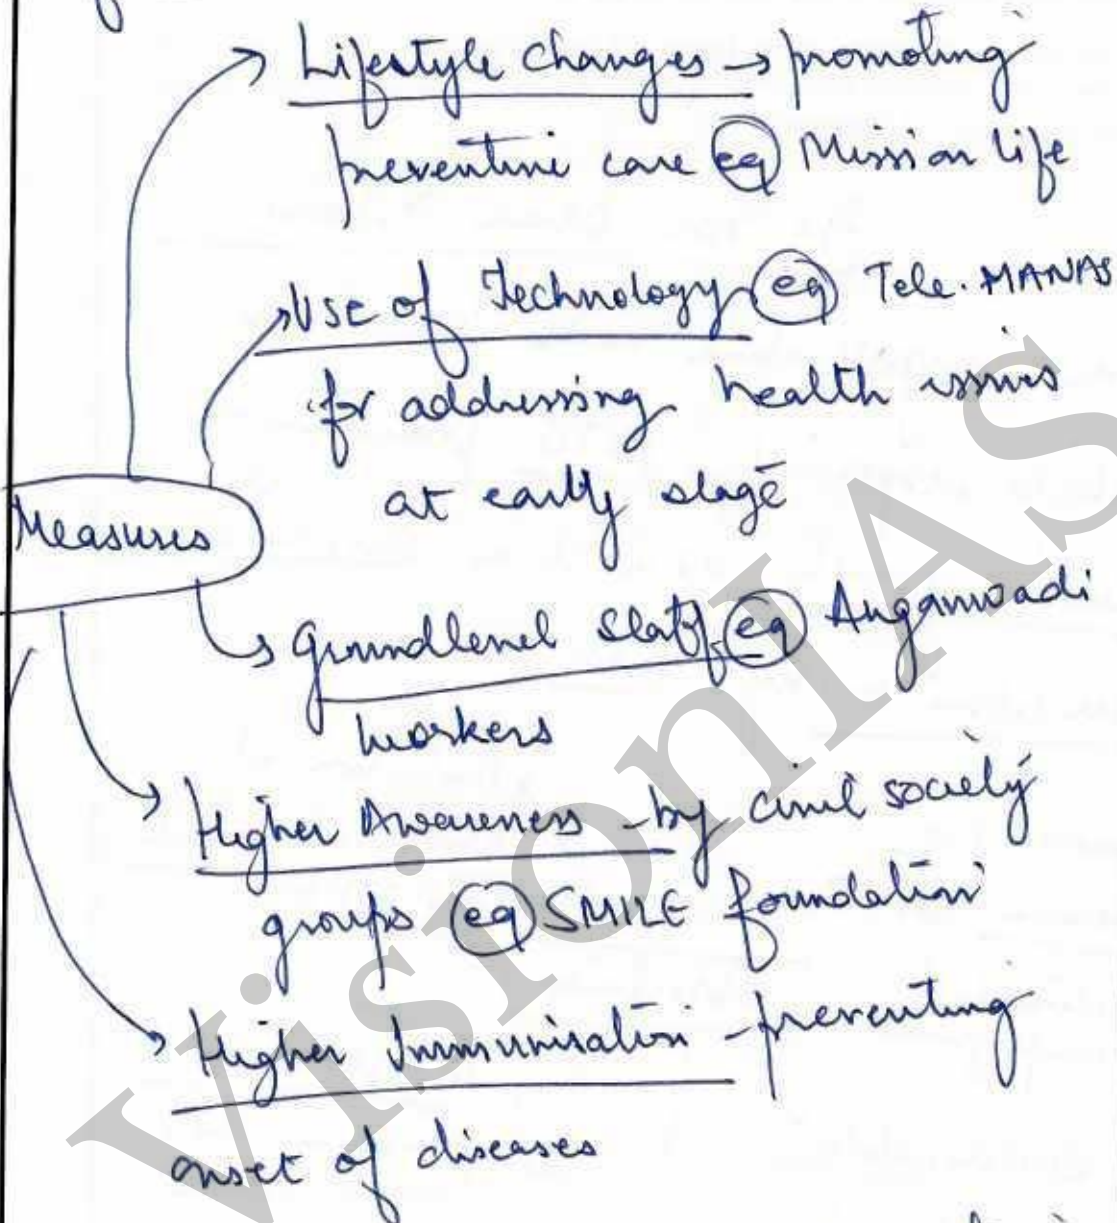 Lifestyle changes → promoting
preventive care eg Mission life
Use of Technology eg Tele-MANAS
for addressing health issues
at early stage
Measures
Groundlevel Staff eg Anganwadi
workers
Higher Awareness - by civil society
groups eg SMILE foundation
Higher Immunisation - preventing
onset of diseases
VisionIAS